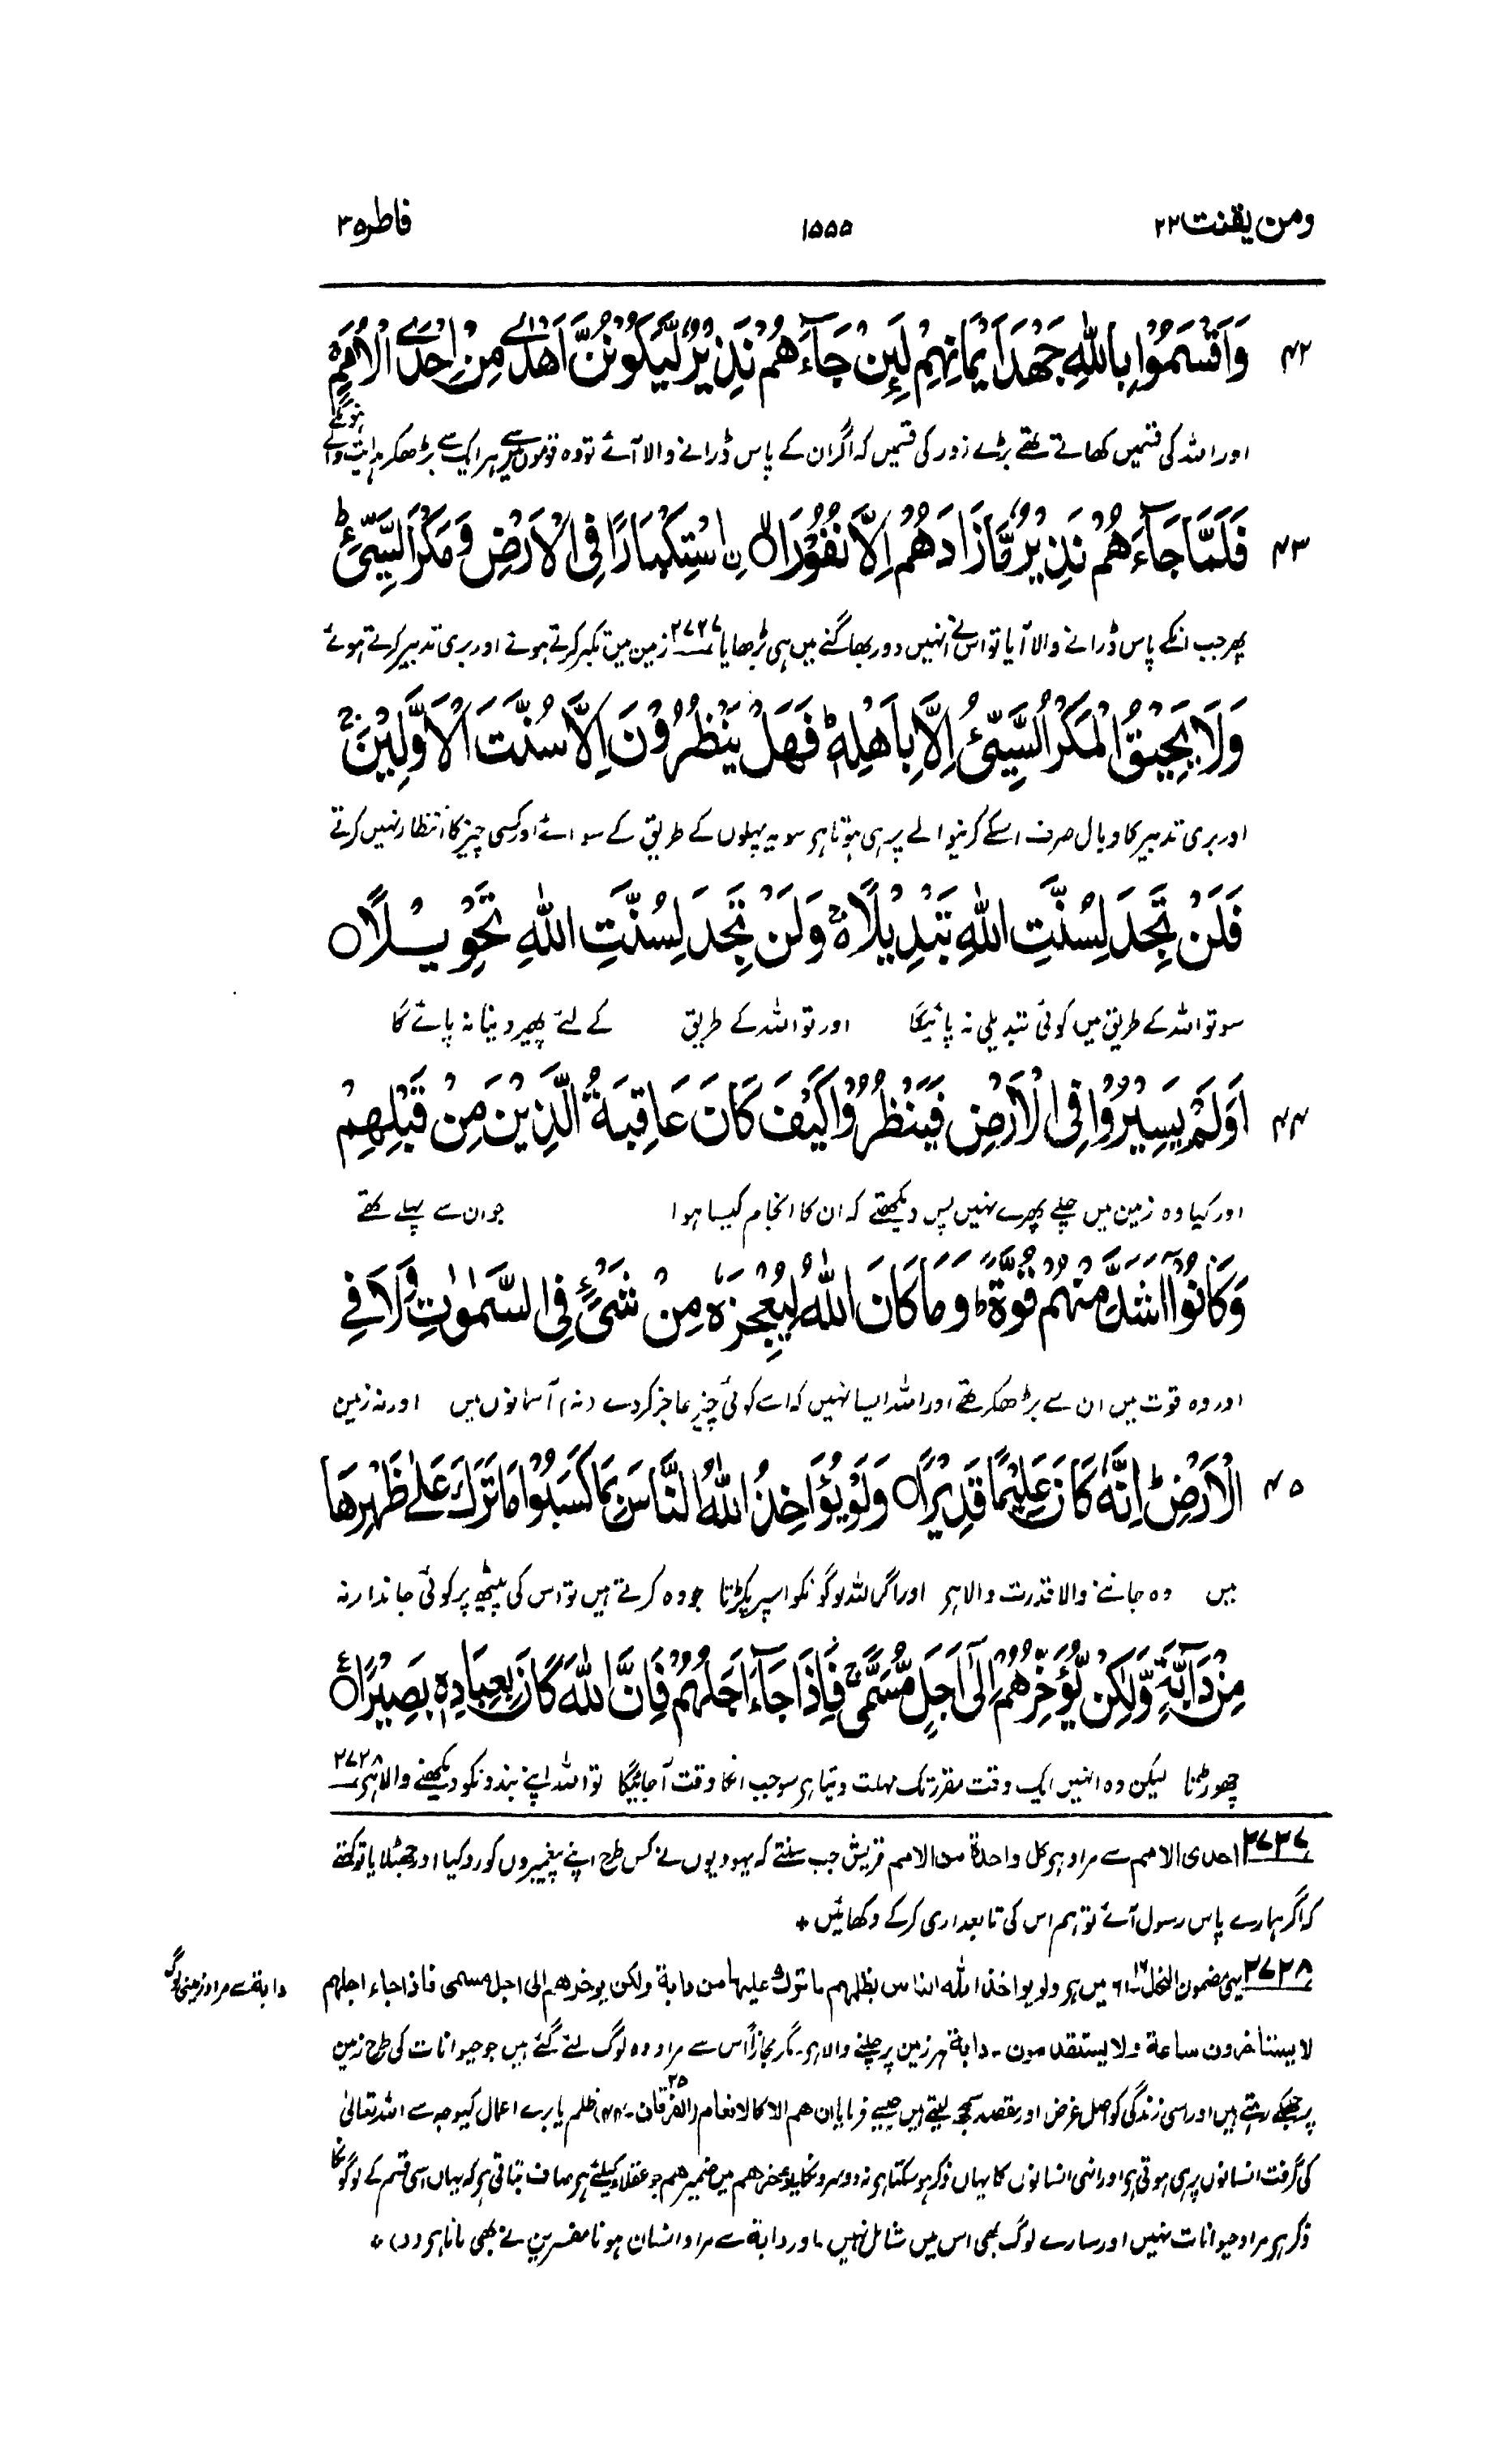 ومن یقنت ۲۲ ۱۵۵۵ فاطر ۳۵
۴۲ وَاَقْسَمُوْا بِاللّٰهِ جَهْدَ اَيْمَانِهِمْ لَئِنْ جَآءَهُمْ نَذِيْرٌ لَّيَكُوْنُنَّ اَهْدٰى مِنْ اِحْدَى الْاُمَمِ
اور اللہ کی قسمیں کھاتے تھے بڑے زور کی قسمیں کہ اگر ان کے پاس ڈرانے والا آئے تو وہ قوموں میں سے ہر ایک سے بڑھکر ہدایت والے ہونگے
۴۳ فَلَمَّا جَآءَهُمْ نَذِيْرٌ مَّا زَادَهُمْ اِلَّا نُفُوْرًا ۙ۝ اِۨسْتِكْبَارًا فِى الْاَرْضِ وَمَكْرَ السَّيِّئِ ؕ
پھر جب انکے پاس ڈرانے والا آیا تو اس نے انہیں دور بھاگنے میں ہی بڑھایا ۲۷۲۷ زمین میں تکبر کرتے ہوئے اور بری تدبیر کرتے ہوئے
وَلَا يَحِيْقُ الْمَكْرُ السَّيِّئُ اِلَّا بِاَهْلِهٖ ؕ فَهَلْ يَنْظُرُوْنَ اِلَّا سُنَّتَ الْاَوَّلِيْنَ ۚ
اور بری تدبیر کا وبال صرف اسکے کرنیوالے پر ہی ہوتا ہو سو یہ پہلوں کے طریق کے سوائے اور کسی چیز کا انتظار نہیں کرتے
فَلَنْ تَجِدَ لِسُنَّتِ اللّٰهِ تَبْدِيْلًا ۚ۬ وَلَنْ تَجِدَ لِسُنَّتِ اللّٰهِ تَحْوِيْلًا ۝
سو تو اللہ کے طریق میں کوئی تبدیلی نہ پائیگا اور تو اللہ کے طریق کے لئے پھیر دینا نہ پائے گا
۴۴ اَوَلَمْ يَسِيْرُوْا فِى الْاَرْضِ فَيَنْظُرُوْا كَيْفَ كَانَ عَاقِبَةُ الَّذِيْنَ مِنْ قَبْلِهِمْ
اور کیا وہ زمین میں چلے پھرے نہیں پس دیکھتے کہ ان کا انجام کیسا ہوا جو ان سے پہلے تھے
وَكَانُوْٓا اَشَدَّ مِنْهُمْ قُوَّةً ؕ وَمَا كَانَ اللّٰهُ لِيُعْجِزَهٗ مِنْ شَىْءٍ فِى السَّمٰوٰتِ وَلَا فِى
اور وہ قوت میں ان سے بڑھکر تھے اور اللہ ایسا نہیں کہ اسے کوئی چیز عاجز کردے (نہ) آسمانوں میں اور نہ زمین
۴۵ الْاَرْضِ ؕ اِنَّهٗ كَانَ عَلِيْمًا قَدِيْرًا ۝ وَلَوْ يُؤَاخِذُ اللّٰهُ النَّاسَ بِمَا كَسَبُوْا مَا تَرَكَ عَلٰى ظَهْرِهَا
میں وہ جاننے والا قدرت والا ہو اور اگر اللہ لوگونکو اسپر پکڑتا جو وہ کرتے ہیں تو اس کی پیٹھ پر کوئی جاندار نہ
مِنْ دَآبَّةٍ وَّلٰكِنْ يُّؤَخِّرُهُمْ اِلٰٓى اَجَلٍ مُّسَمًّى ۚ فَاِذَا جَآءَ اَجَلُهُمْ فَاِنَّ اللّٰهَ كَانَ بِعِبَادِهٖ بَصِيْرًا ۝
چھوڑتا لیکن وہ انہیں ایک وقت مقرر تک مہلت دیتا ہو سو جب انکا وقت آجائیگا تو اللہ اپنے بندونکو دیکھنے والا ہو ۲۷۲۸
۲۷۲۷ احدی الامم سے مراد ہو کل واحدة من الامم قریش جب سنتے کہ یہودیوں نے کس طرح اپنے پیغمبروں کو رد کیا اور جھٹلایا تو کہتے
کہ اگر ہمارے پاس رسول آئے تو ہم اس کی تابعداری کرکے دکھائیں +
۲۷۲۸ یہی مضمون النحل ۱۶-۶۱ میں ہو ولو یواخذ الله الناس بظلمهم ما ترك علیها من دابة ولکن یوخرهم الی اجل مسمی فاذا جاء اجلهم
دابة سے مراد زمینی لوگ
لا یستاخرون ساعة ولا یستقدمون - دابة ہر زمین پر چلنے والا ہو۔ مگر مجازاً اس سے مراد وہ لوگ لئے گئے ہیں جو حیوانات کی طرح زمین
پر جھکے رہتے ہیں اور اسی زندگی کو اصل غرض اور مقصد سمجھ لیتے ہیں جیسے فرمایا ان هم الا کالانعام (الفرقان ۲۵-۴۴) ظلم یا برے اعمال کیوجہ سے اللہ تعالیٰ
کی گرفت انسانوں پر ہی ہوتی ہو اور انہی انسانوں کا یہاں ذکر ہو سکتا ہو نہ دوسرونکا یوخرهم میں ضمیر هم جو عقلاء کیلئے ہو صاف بتاتی ہو کہ یہاں اسی قسم کے لوگونکا
ذکر ہو مراد حیوانات نہیں اور سارے لوگ بھی اس میں شامل نہیں۔ اور دابة سے مراد انسان ہونا مفسرین نے بھی مانا ہو (د) +